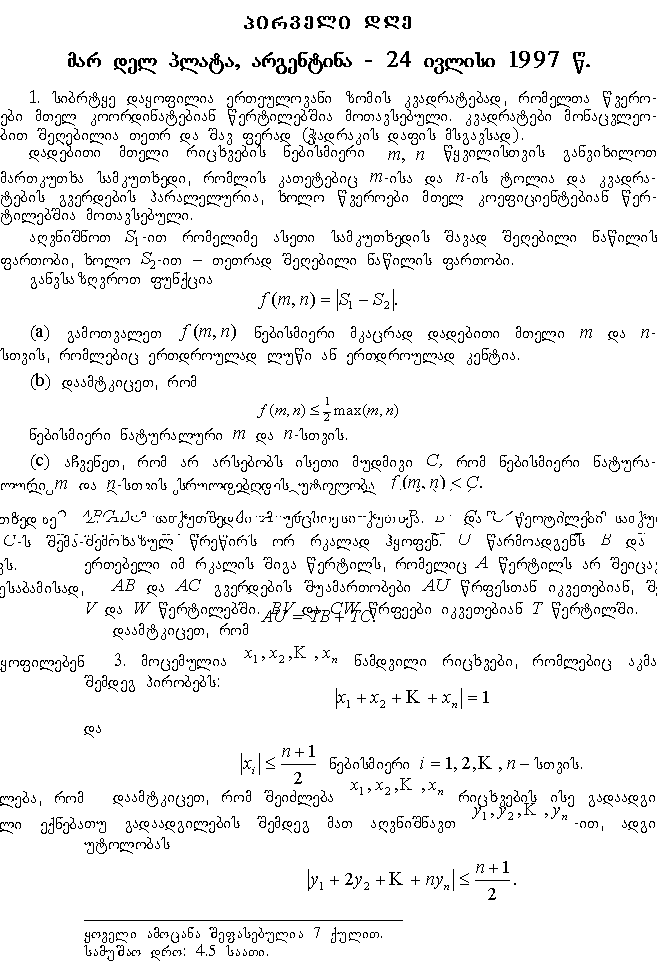 პირველი დღე
მარ დელ პლატა, არგენტინა - 24 ივლისი 1997 წ.
1. სიბრტყე დაყოფილია ერთეულოვანი ზომის კვადრატებად, რომელთა წვერო-
ები მთელ კოორდინატებიან წერტილებშია მოთავსებული. კვადრატები მონაცვლეო-
ბით შეღებილია თეთრ და შავ ფერად (ჭადრაკის დაფის მსგავსად).
დადებითი მთელი რიცხვების ნებისმიერი m, n წყვილისთვის განვიხილოთ
მართკუთხა სამკუთხედი, რომლის კათეტებიც m-ისა და n-ის ტოლია და კვადრა-
ტების გვერდების პარალელურია, ხოლო წვეროები მთელ კოეფიციენტებიან წერ-
ტილებშია მოთავსებული.
აღვნიშნოთ S₁-ით რომელიმე ასეთი სამკუთხედის შავად შეღებილი ნაწილის
ფართობი, ხოლო S₂-ით – თეთრად შეღებილი ნაწილის ფართობი.
განვსაზღვროთ ფუნქცია
f (m, n) = |S₁ − S₂|.
(a) გამოთვალეთ f (m, n) ნებისმიერი მკაცრად დადებითი მთელი m და n-
სთვის, რომლებიც ერთდროულად ლუწი ან ერთდროულად კენტია.
(b) დაამტკიცეთ, რომ
f (m, n) ≤ 1/2 max(m, n)
ნებისმიერი ნატურალური m და n-სთვის.
(c) აჩვენეთ, რომ არ არსებობს ისეთი მუდმივი C, რომ ნებისმიერი ნატურა-
ლური m და n-სთვის სრულდებოდეს უტოლობა f (m, n) < C.
C-ს შემოხაზულ წრეწირს ორ რკალად ჰყოფენ. U წარმოადგენს B და
ვს. ერთებელი იმ რკალის შიგა წერტილს, რომელიც A წერტილს არ შეიცავ
ესაბამისად, AB და AC გვერდების შუამართობები AU წრფესთან იკვეთებიან, შ
V და W წერტილებში. BV და CW წრფეები იკვეთებიან T წერტილში.
AU = TB + TC.
დაამტკიცეთ, რომ
ყოფილებენ 3. მოცემულია x₁, x₂, K , xₙ ნამდვილი რიცხვები, რომლებიც აკმა
შემდეგ პირობებს:
|x₁ + x₂ + K + xₙ| = 1
და
|xᵢ| ≤ (n + 1)/2 ნებისმიერი i = 1, 2, K , n – სთვის.
ლება, რომ დაამტკიცეთ, რომ შეიძლება x₁, x₂, K , xₙ რიცხვების ისე გადაადგი
ლი ექნებათუ გადაადგილების შემდეგ მათ აღვნიშნავთ y₁, y₂, K , yₙ -ით, ადგი
უტოლობას
|y₁ + 2y₂ + K + nyₙ| ≤ (n + 1)/2.
ყოველი ამოცანა შეფასებულია 7 ქულით.
სამუშაო დრო: 4.5 საათი.